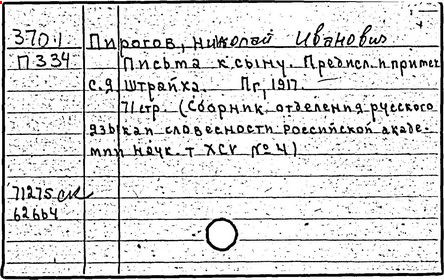 370.1 Пирогов, Николай Иванович
П 334 Письма к сыну. Предисл. и примеч
с.я Штрайха. Пг, 1917.
71 стр. (Сборник отделения русского
языка и словесности Российской акаде-
мии наук. т XCV № 4)
71275 ск
62664